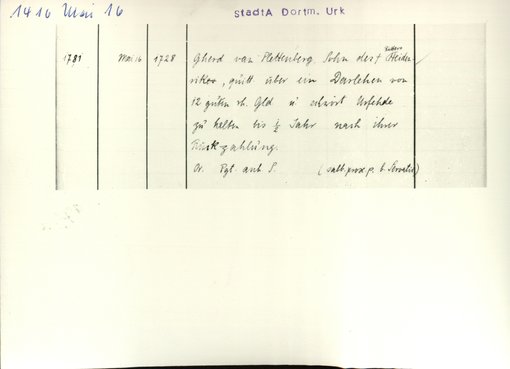 1416 Mai 16
StadtA Dortm. Urk
1781 Mai 16 1728 Gherd van Plettenberg, Sohn des † Ritters Heiden-
rikes, quitt über ein Darlehen von
12 guten rh. Gld u schwört Urfehde
zu halten bis ½ Jahr nach ihrer
Rückzahlung.
Or. Pgt. anh S. (sabb. prox p. b. Servatii)